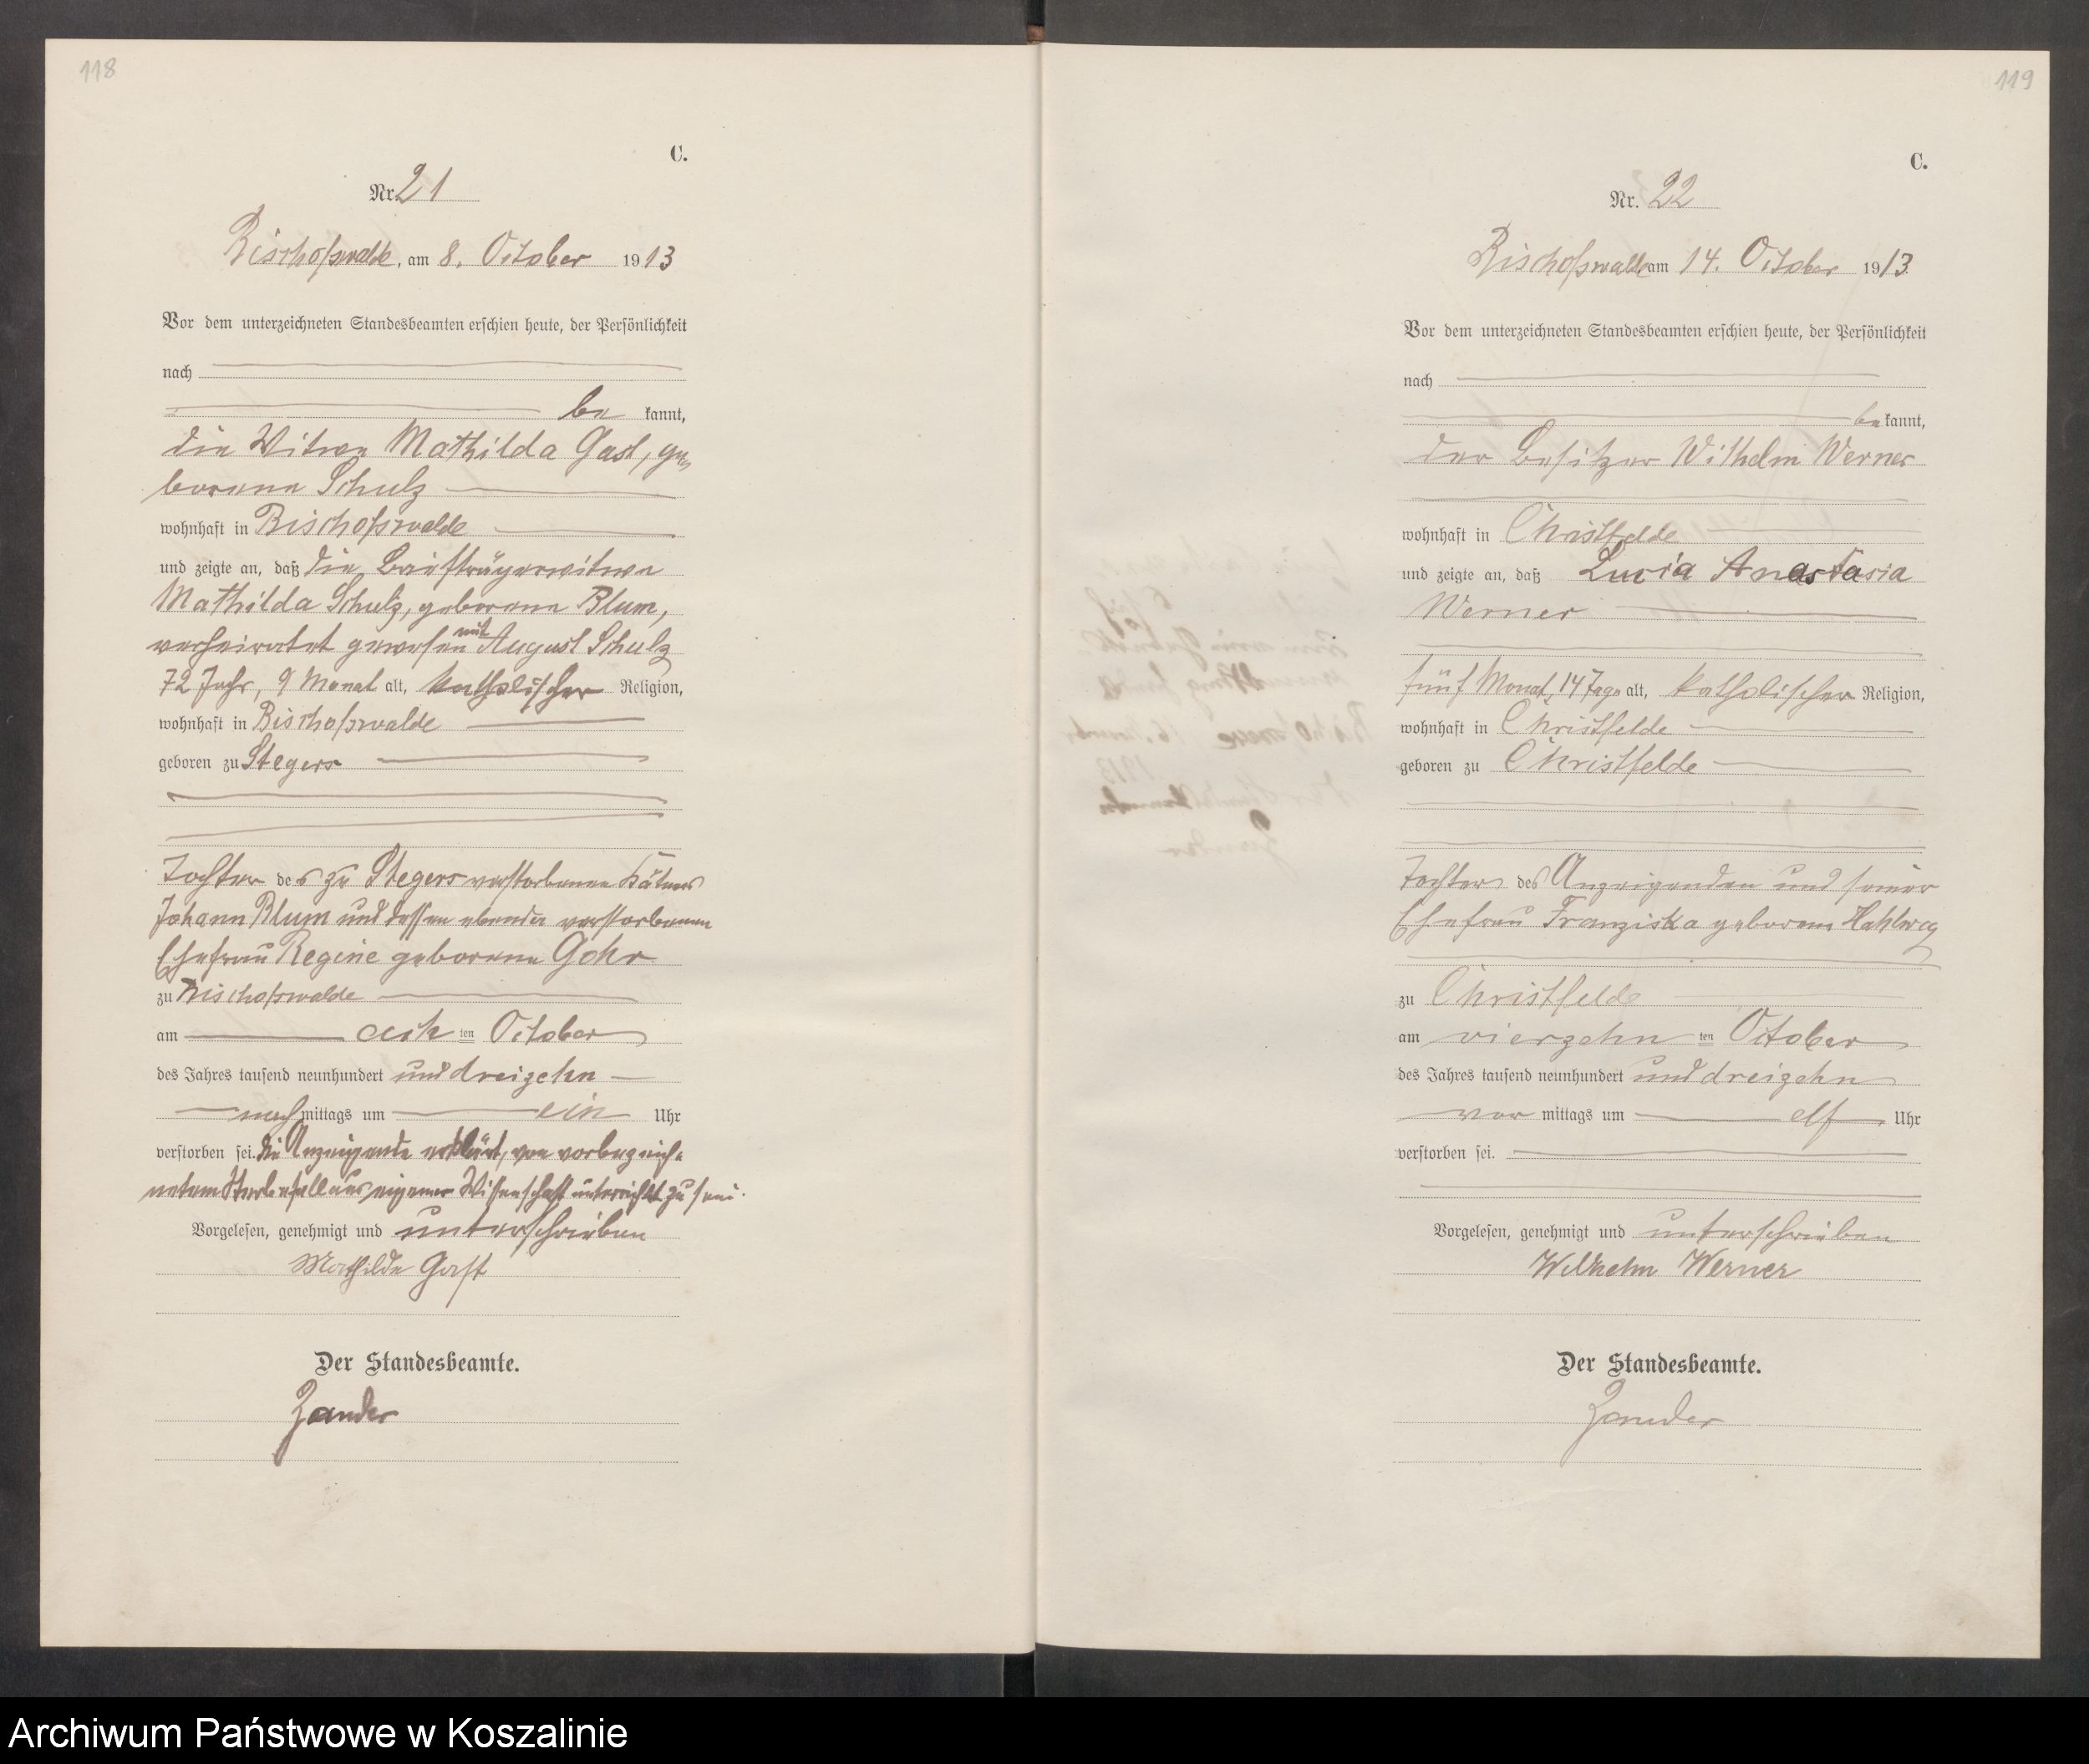 118
C.
Nr. 21
Bischofswalde, am 8. October 1913
Vor dem unterzeichneten Standesbeamten erschien heute, der Persönlichkeit
nach
be kannt,
die Witwe Mathilda Gast, ge-
borene Schulz
wohnhaft in Bischofswalde
und zeigte an, daß die Briefträgerwitwe
Mathilda Schulz, geborene Blum,
verheiratet gewesen mit August Schulz
72 Jahr, 9 Monat alt, katholischer Religion,
wohnhaft in Bischofswalde
geboren zu Stegers
Tochter des zu Stegers verstorbenen Kätners
Johann Blum und dessen ebenda verstorbenen
Ehefrau Regine geborene Gohr
zu Bischofswalde
am acht ten October
des Jahres tausend neunhundert und dreizehn
nach mittags um ein Uhr
verstorben sei. Die Anzeigende erklärt, von vorbezeich-
netem Sterbefall aus eigener Wissenschaft unterrichtet zu sein.
Vorgelesen, genehmigt und unterschrieben
Mathilde Gast
Der Standesbeamte.
Zander
119
C.
Nr. 22
Bischofswalde am 14. October 1913
Vor dem unterzeichneten Standesbeamten erschien heute, der Persönlichkeit
nach
be kannt,
der Besitzer Wilhelm Werner
wohnhaft in Christfelde
und zeigte an, daß Lucia Anastasia
Werner
fünf Monat, 14 Tage alt, katholischer Religion,
wohnhaft in Christfelde
geboren zu Christfelde
Tochter des Anzeigenden und seiner
Ehefrau Franziska geborene Hahlweg
zu Christfelde
am vierzehn ten October
des Jahres tausend neunhundert und dreizehn
vor mittags um elf Uhr
verstorben sei.
Vorgelesen, genehmigt und unterschrieben
Wilhelm Werner
Der Standesbeamte.
Zander
Archiwum Państwowe w Koszalinie